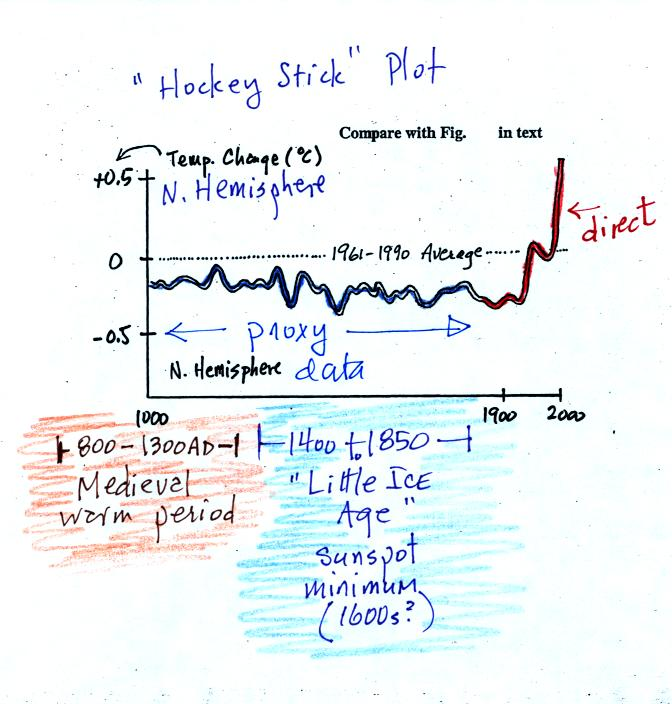 "Hockey Stick" Plot
Compare with Fig. in text
Temp. Change (°C)
+0.5
N. Hemisphere
direct
0
1961-1990 Average
-0.5
proxy
N. Hemisphere data
1000
1900
2000
800-1300AD
1400 to 1850
Medieval
warm period
"Little Ice
Age"
sunspot
minimum
(1600s?)